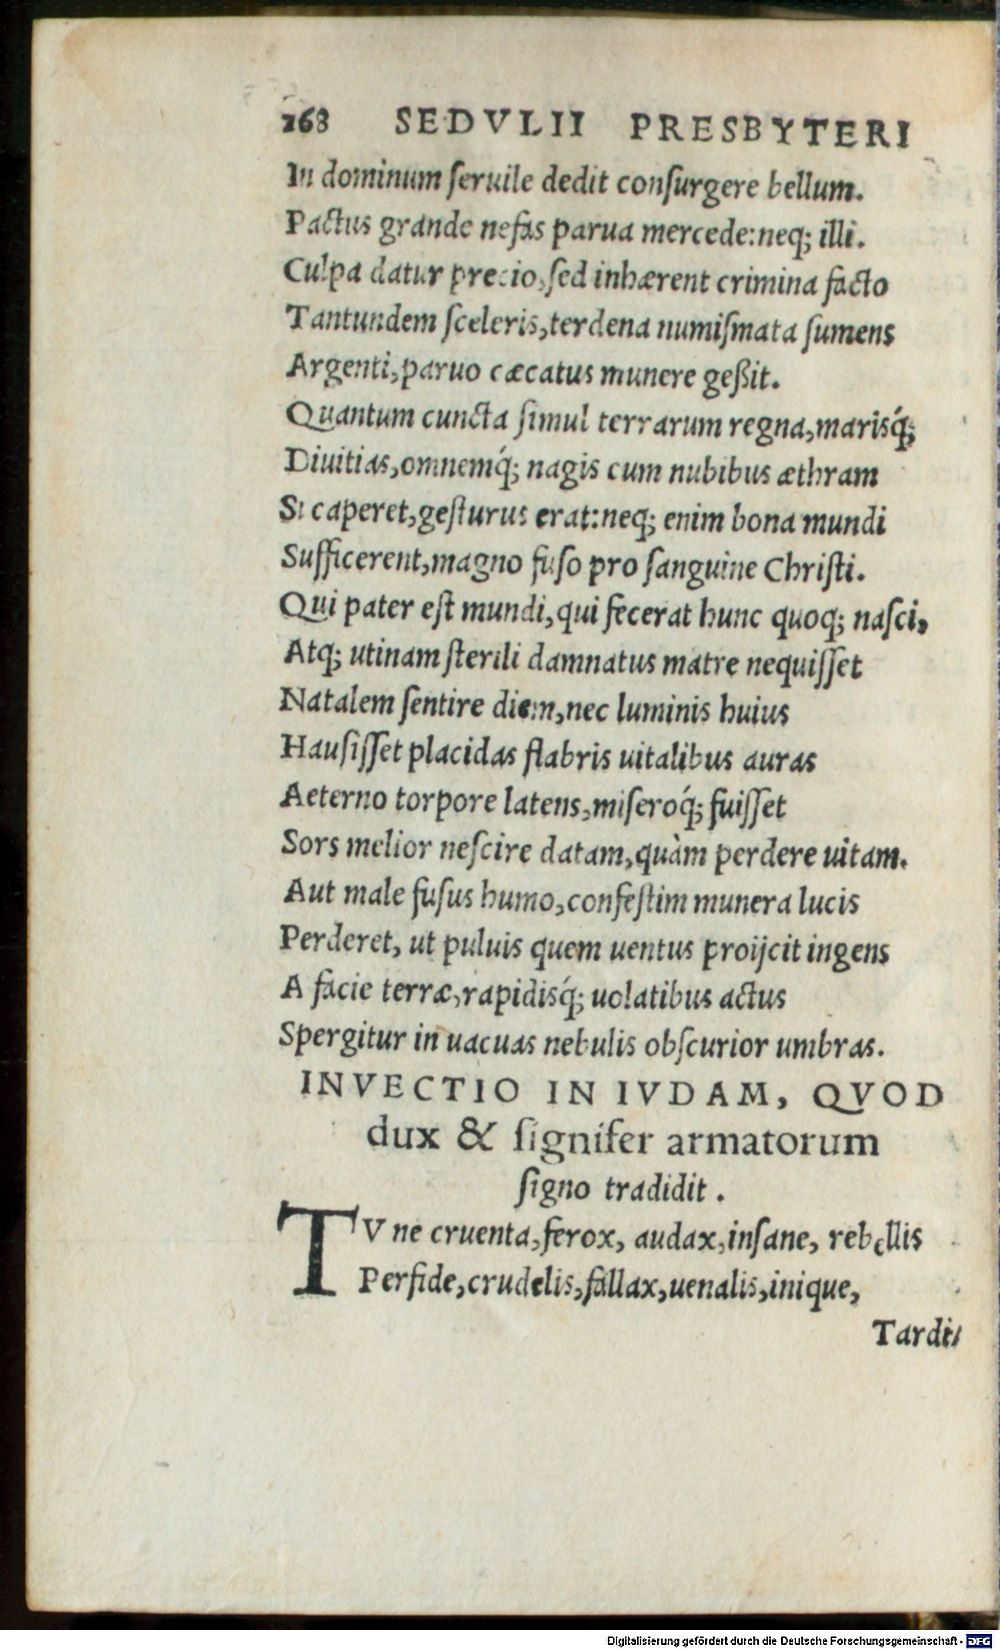 168 SEDVLII PRESBYTERI
In dominum ſeruile dedit conſurgere bellum.
Pactus grande nefas parua mercede:neq; illi.
Culpa datur precio,ſed inhærent crimina facto
Tantundem ſceleris,terdena numiſmata ſumens
Argenti,paruo cæcatus munere geßit.
Quantum cuncta ſimul terrarum regna,marisq́;
Diuitias,omnemq́; nagis cum nubibus æthram
Si caperet,geſturus erat:neq; enim bona mundi
Sufficerent,magno fuſo pro ſanguine Chriſti.
Qui pater eſt mundi,qui fecerat hunc quoq; naſci,
Atq; utinam ſterili damnatus matre nequiſſet
Natalem ſentire diem,nec luminis huius
Hauſiſſet placidas flabris uitalibus auras
Aeterno torpore latens,miſeroq́; fuiſſet
Sors melior neſcire datam,quàm perdere uitam.
Aut male fuſus humo,confeſtim munera lucis
Perderet, ut puluis quem uentus proijcit ingens
A facie terræ,rapidisq́; uolatibus actus
Spergitur in uacuas nebulis obſcurior umbras.
INVECTIO IN IVDAM, QVOD
dux & ſignifer armatorum
ſigno tradidit.
TV ne cruenta,ferox, audax,inſane, rebellis
Perfide,crudelis,fallax,uenalis,inique,
Tardit/
Digitalisierung gefördert durch die Deutsche Forschungsgemeinschaft - DFG